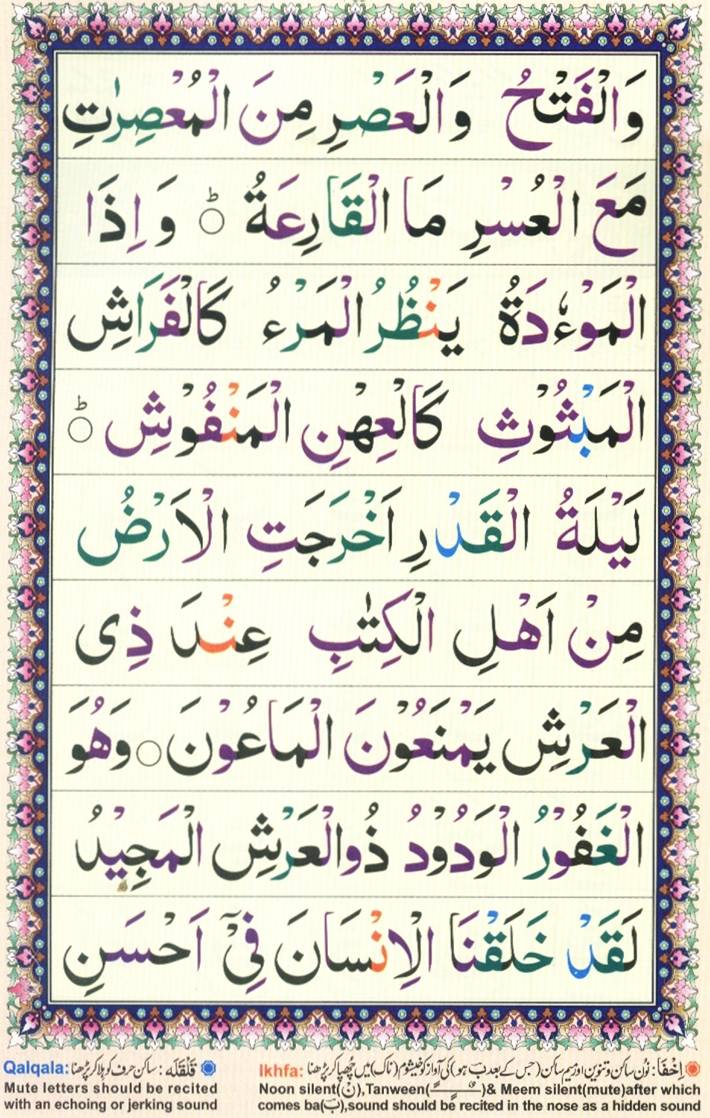 وَالْفَتْحُ وَالْعَصْرِ مِنَ الْمُعْصِرٰتِ
مَعَ الْعُسْرِ مَا الْقَارِعَةُ ؕ وَ اِذَا
الْمَوْءٗدَةُ يَنْظُرُ الْمَرْءُ كَالْفَرَاشِ
الْمَبْثُوْثِ كَالْعِهْنِ الْمَنْفُوْشِ ؕ
لَيْلَةُ الْقَدْرِ اَخْرَجَتِ الْاَرْضُ
مِنْ اَهْلِ الْكِتٰبِ عِنْدَ ذِى
الْعَرْشِ يَمْنَعُوْنَ الْمَاعُوْنَ ○ وَهُوَ
الْغَفُوْرُ الْوَدُوْدُ ذُوالْعَرْشِ الْمَجِيْدُ
لَقَدْ خَلَقْنَا الْاِنْسَانَ فِىْٓ اَحْسَنِ
Ikhfa: اِخفَا: نون ساکن و تنوین اور میم ساکن (جس کے بعد ب ہو) کی آواز کو خیشوم (ناک) میں چھپا کر پڑھنا
Noon silent(نْ),Tanween(ــًــٍــٌ)& Meem silent(mute)after which
comes ba(ب),sound should be recited in the nose as a hidden sound
Qalqala: قَلقَلَه: ساکن حرف کو ہلا کر پڑھنا
Mute letters should be recited
with an echoing or jerking sound